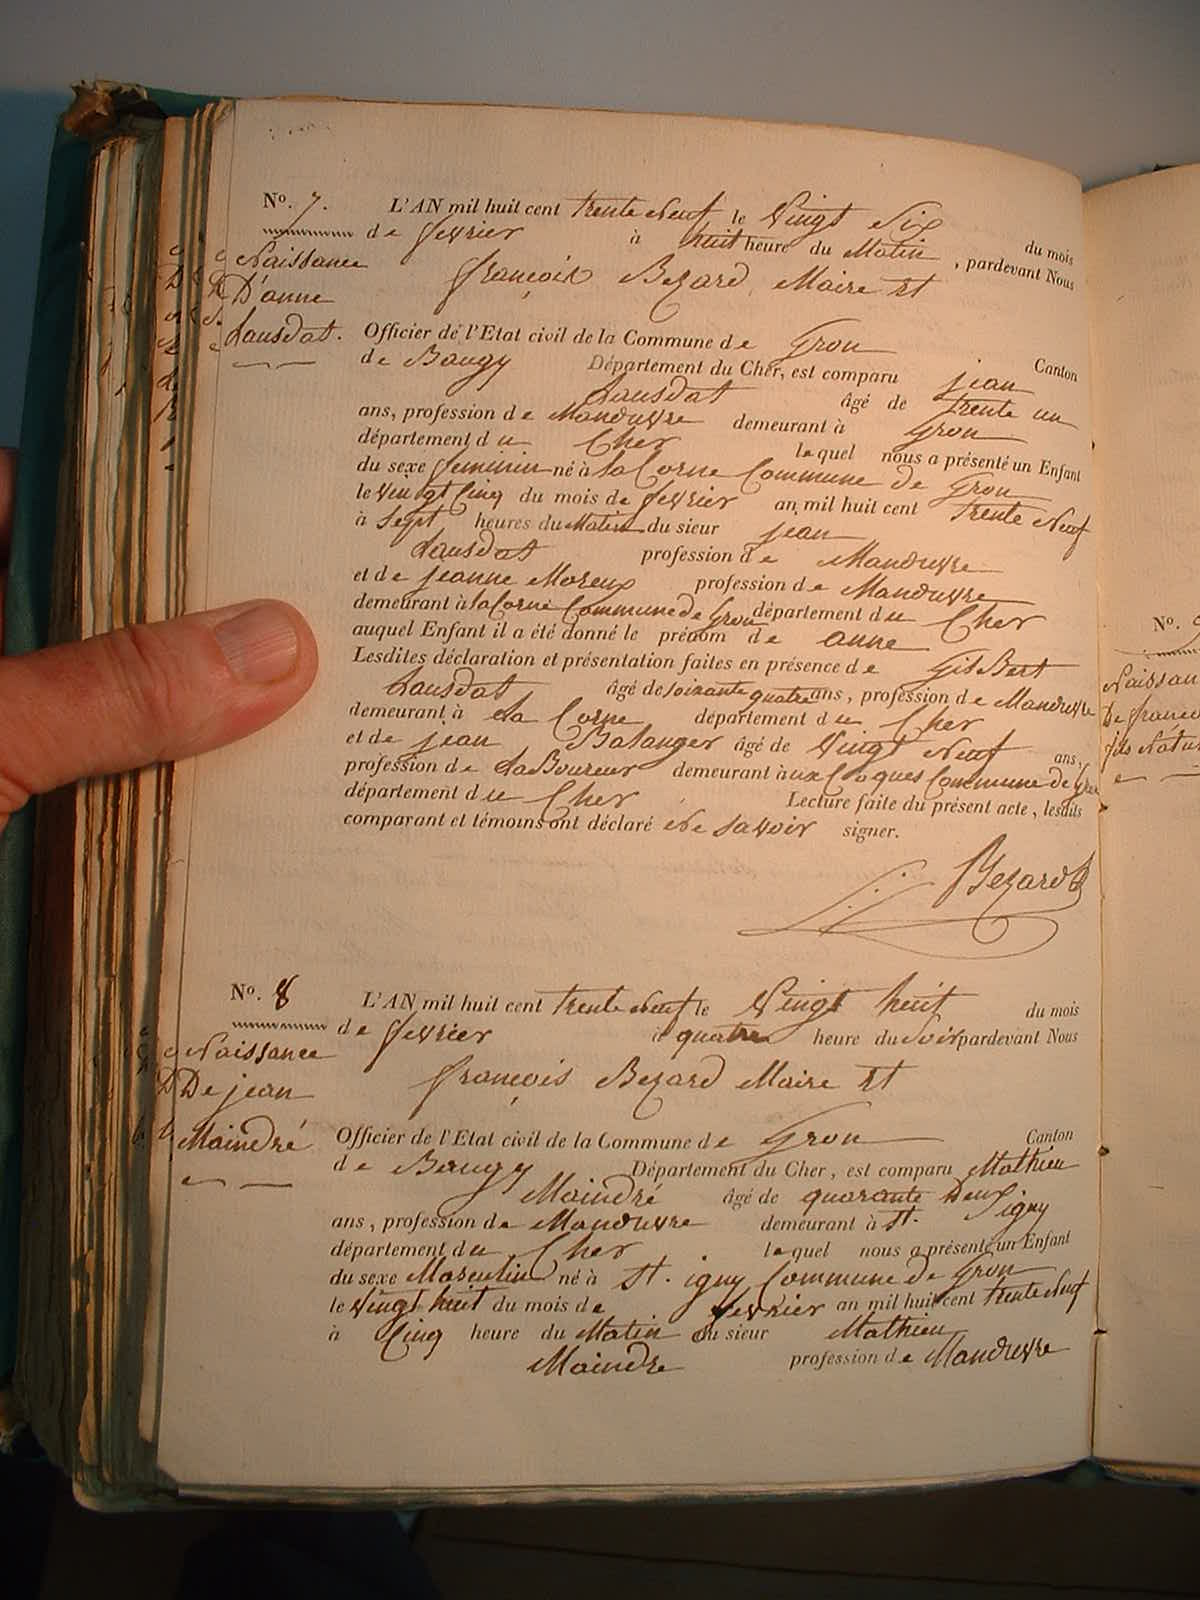 No. 7.
Naissance
D'anne
Lausdat.
L'AN mil huit cent trente Neuf le Vingt Six du mois
de fevrier à huit heure du Matin, pardevant Nous
françois Bezard Maire Et
Officier de l'Etat civil de la Commune de Gron Canton
de Baugy Département du Cher, est comparu jean
Lausdat âgé de trente un
ans, profession de Manœuvre demeurant à Gron
département du Cher lequel nous a présenté un Enfant
du sexe feminin né à la Corne Commune de Gron
le vingt Cinq du mois de fevrier an mil huit cent trente Neuf
à Sept heures du Matin du sieur jean
Lausdat profession de Manœuvre
et de jeanne Moreux profession de Manœuvre
demeurant à la Corne Commune de Gron département du Cher
auquel Enfant il a été donné le prénom de anne
Lesdites déclaration et présentation faites en présence de GilBert
Lausdat âgé de soixante quatre ans, profession de Manœuvre
demeurant à La Corne département du Cher
et de jean Balanger âgé de Vingt Neuf ans,
profession de LaBoureur demeurant aux Coques Commune de Gron
département du Cher Lecture faite du présent acte, lesdits
comparant et témoins ont déclaré Ne savoir signer.
Bezard
No. 8
Naissance
De jean
Maindré
L'AN mil huit cent trente Neuf le Vingt huit du mois
de fevrier à quatre heure du Soir pardevant Nous
françois Bezard Maire Et
Officier de l'Etat civil de la Commune de Gron Canton
de Baugy Département du Cher, est comparu Mathieu
Maindré âgé de quarante Deux
ans, profession de Manœuvre demeurant à St. Igny
département du Cher lequel nous a présenté un Enfant
du sexe Masculin né à St. igny Commune de Gron
le Vingt huit du mois de fevrier an mil huit cent trente Neuf
à Cinq heure du Matin du sieur Mathieu
Maindré profession de Manœuvre
No.
Naissan
De franco
fils Natu